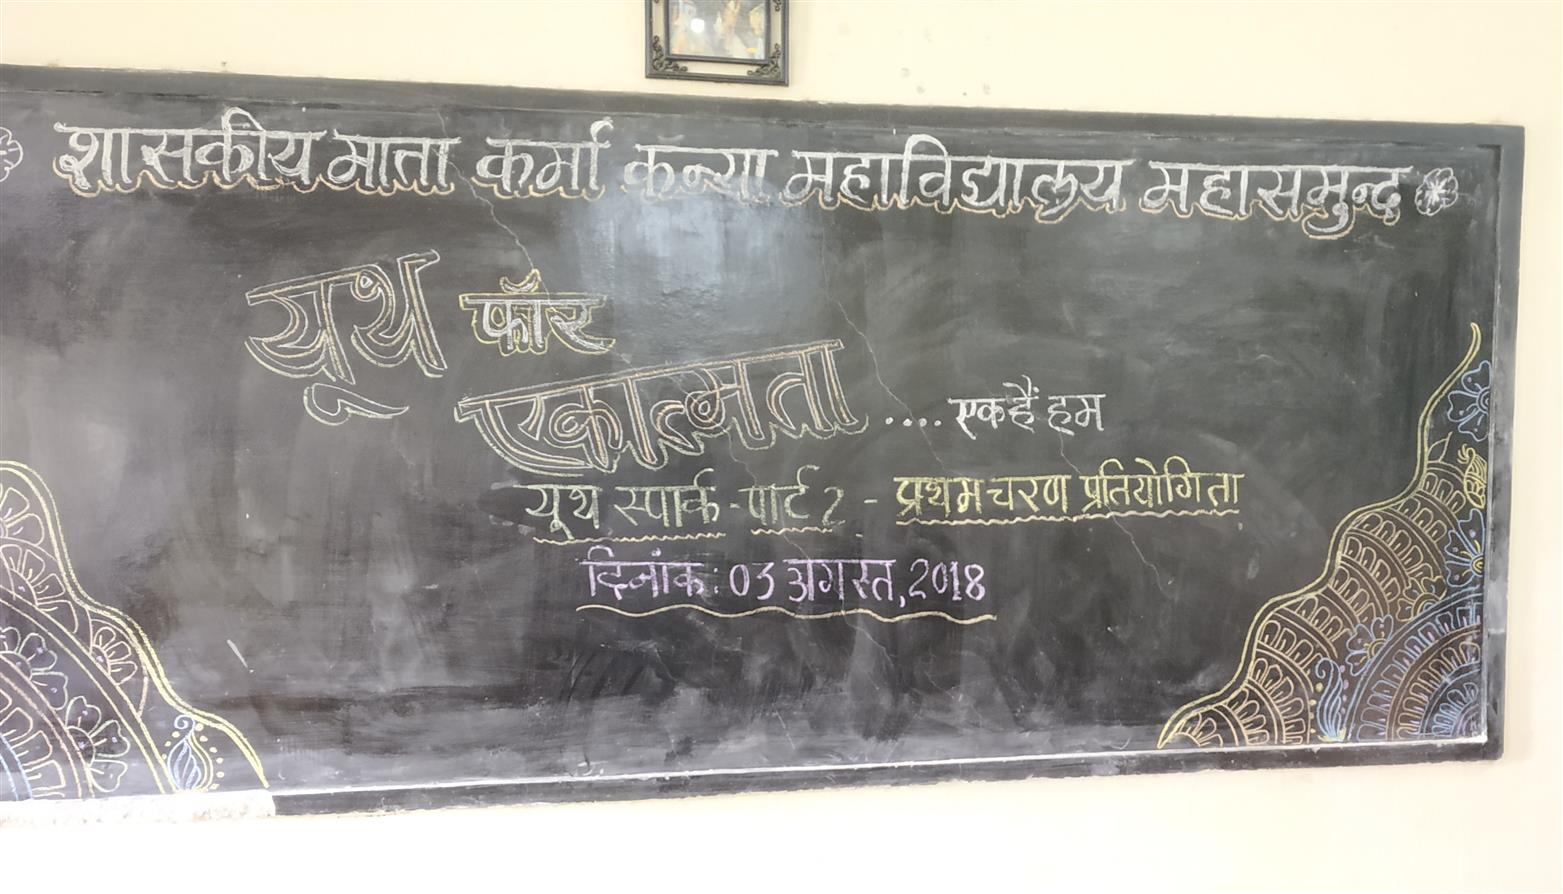 शासकीय माता कर्मा कन्या महाविद्यालय महासमुन्द
यूथ फॉर
एकात्मता .... एक हैं हम
यूथ स्पार्क - पार्ट 2 - प्रथम चरण प्रतियोगिता
दिनांक: 03 अगस्त, 2018